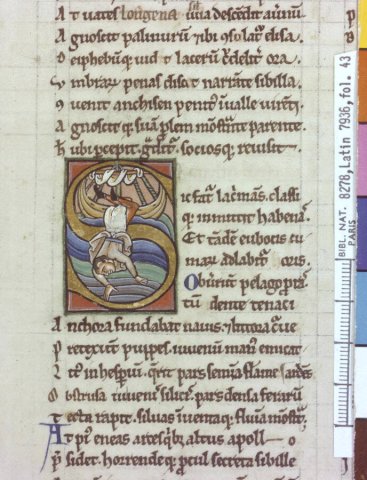 At uates longeua una descendit auernu
Agnoscit palinurū ⁊ ibi ꝯsolat' elisa
Deiphebūq; uid& lacerū c̄delit' ora.
Vmbrarꝝ penas discit narrāte sibilla.
ꝯuenit anchisen penit' ī ualle uirēti.
Agnoscit q; suā ꝓlem mōstrāte parente.
H ubi ꝑcepit gdit' sociosq; reuisit.
Sic fat' lac'mās. classi
q; inmittit habenas.
Et tādē euboicis cu
maꝝ adlabit' oris.
Obuertunt pelago ꝓras.
tū dente tenaci
Anchora fundabat nauis. ⁊ littora c'ue
Pretexunt puppes. iuuenū man' emicat
Litt' in hesperiū. q'rit pars semina flāme
Obstrusa ī uenis silicis. pars densa ferarū
Tecta rapit. siluas inuentaq; flumīa mōstrat.
At pi' eneas arces q'b; altus apollo
p̄sidet. horrendeq; ꝓcul secreta sibille
BIBL. NAT. 8278, Latin 7936, fol. 43
PARIS